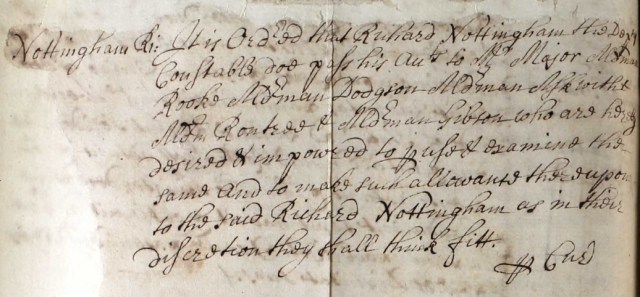 Nottingham Ri: It is Ord:ed that Richard Nottingham the Depty
Constable doe pass his Acts to Mr Major Aldman
Rooke Aldman Dodgson Aldman Askwith
Aldm Rontree & Aldman Gibson who are hereby
desired & impowred to puse & examine the
same and to make such allowante thereupon
to the said Richard Nottingham as in their
discretion they shall think fitt.
Cur